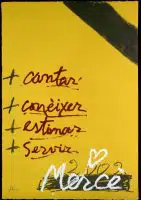 + cantar
+ conèixer
+ estimar
+ servir
Mercè